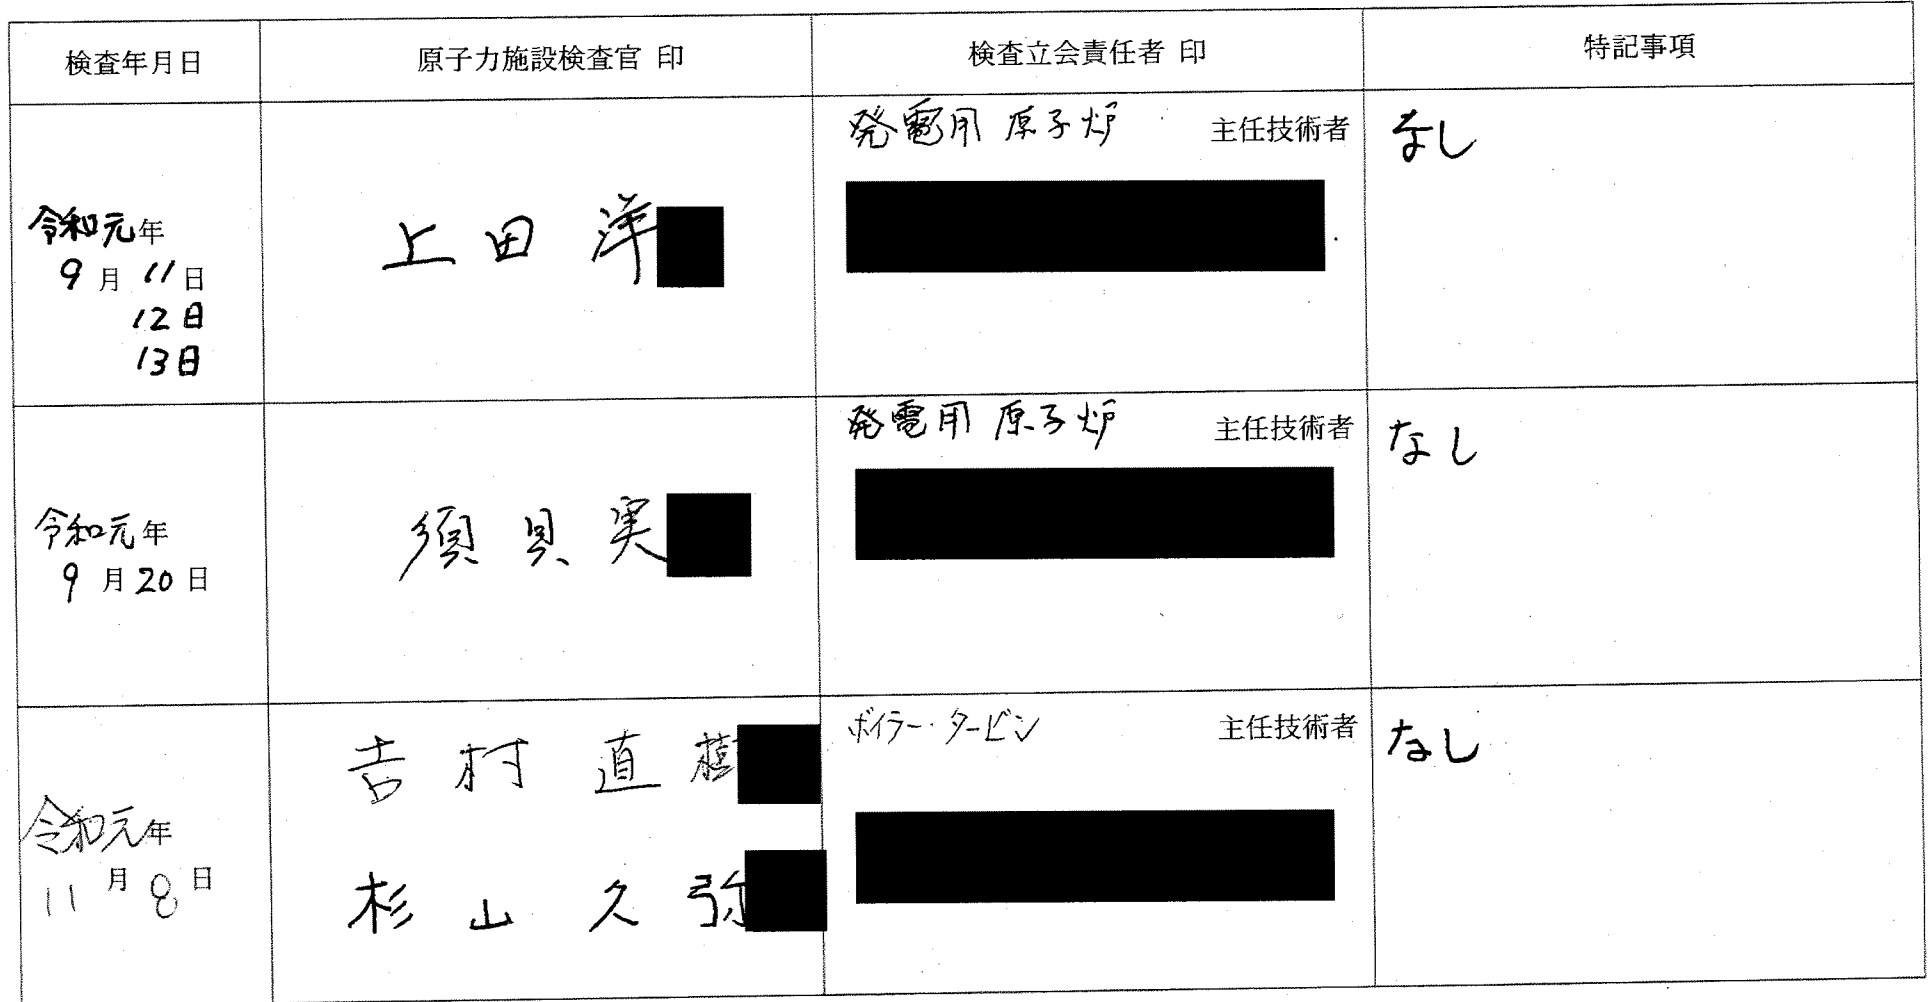 検査年月日
原子力施設検査官 印
検査立会責任者 印
特記事項
令和元年
9月11日
12日
13日
上田洋
発電用原子炉 主任技術者
なし
令和元年
9月20日
須貝実
発電用原子炉 主任技術者
なし
令和元年
11月8日
吉村直樹
杉山久弥
ボイラー・タービン 主任技術者
なし